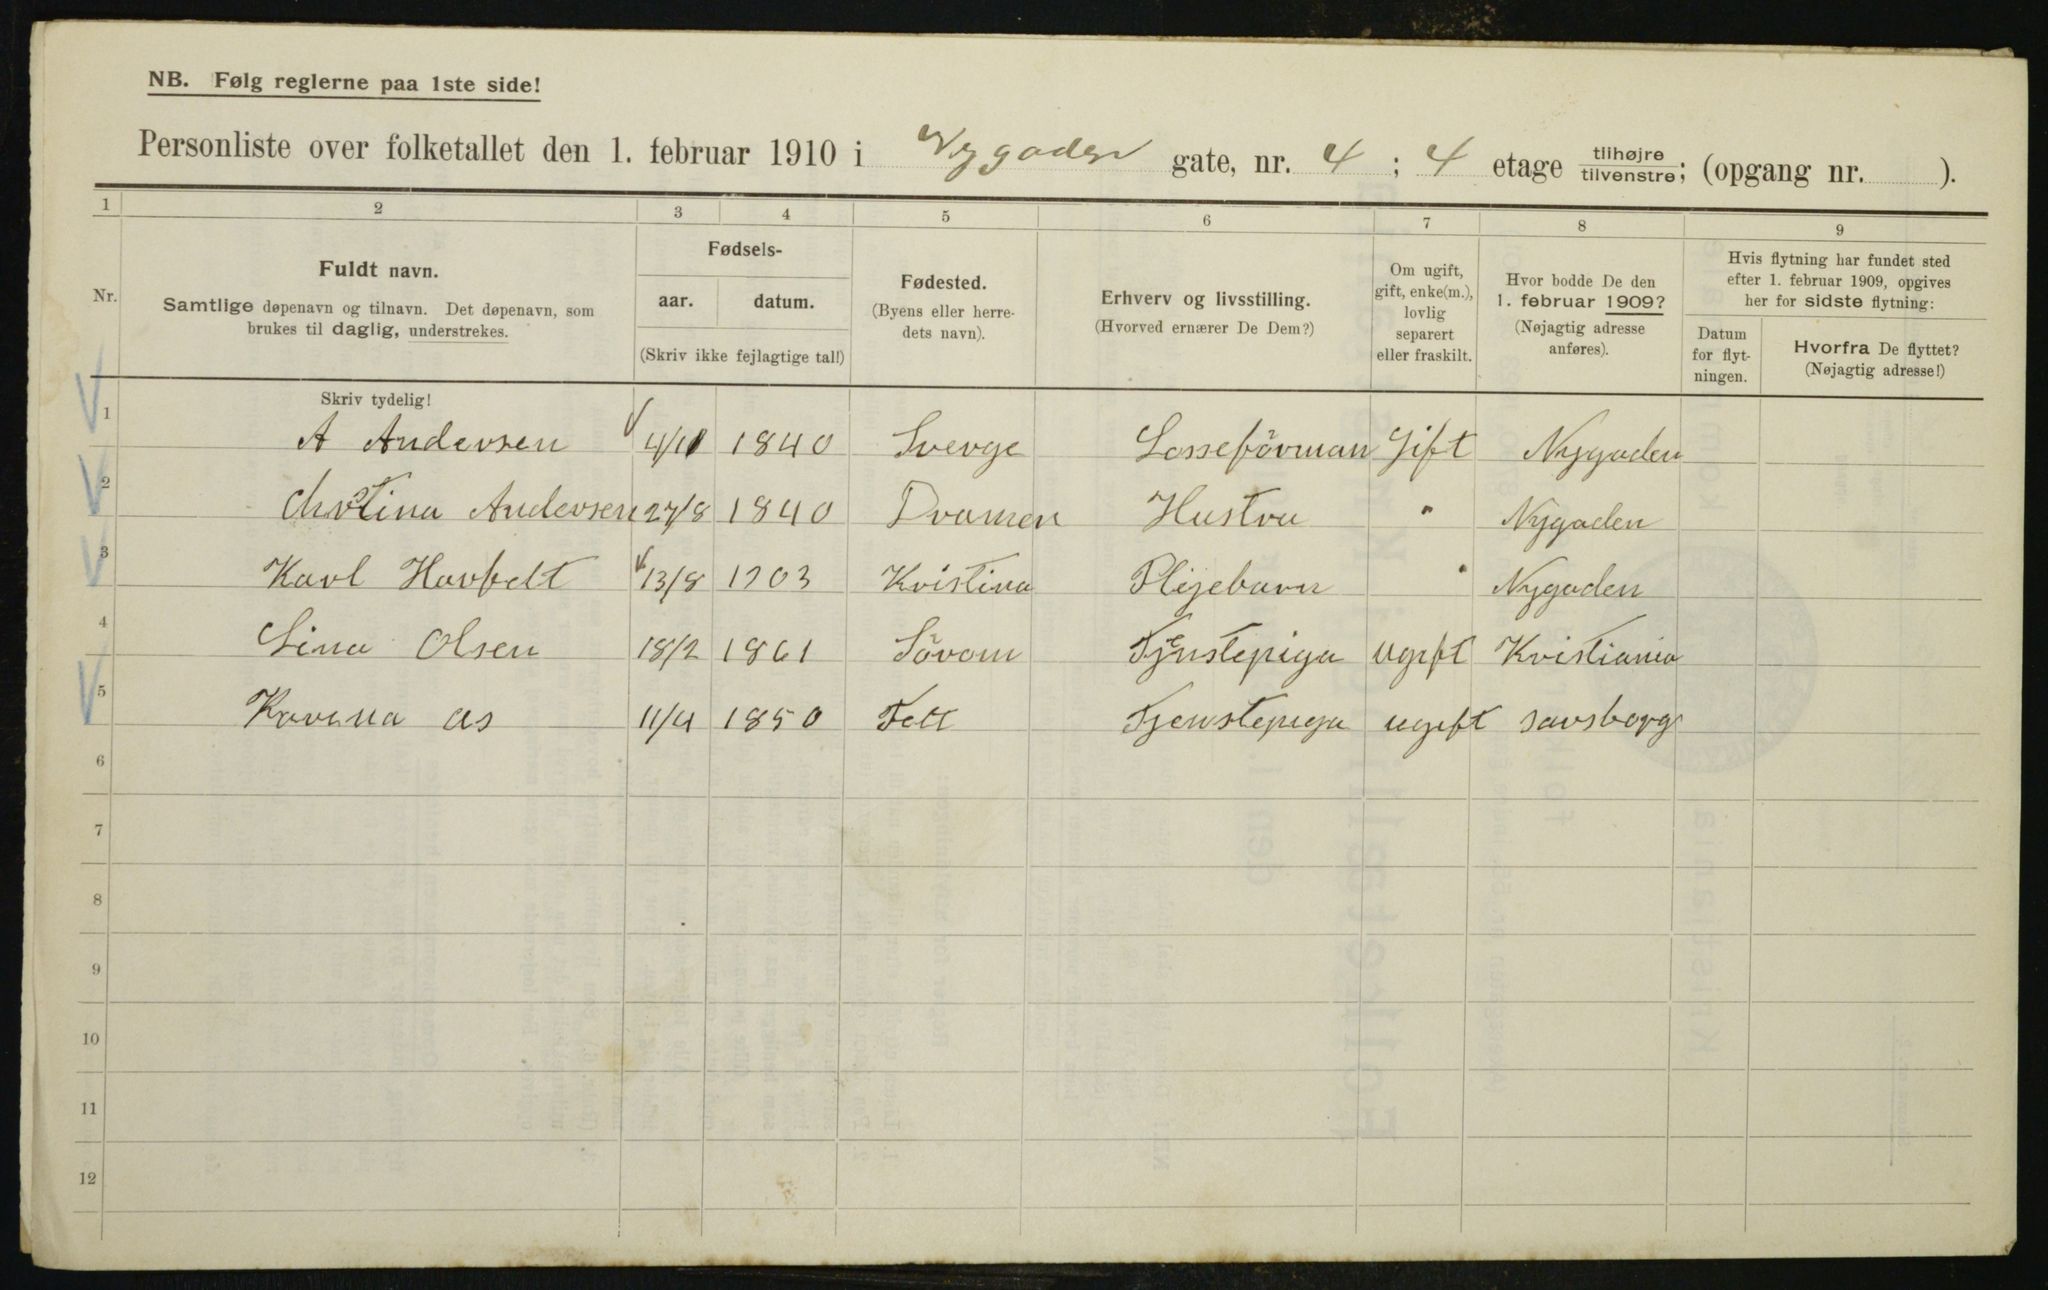 NB. Følg reglerne paa 1ste side!
Personliste over folketallet den 1. februar 1910 i Nygaden gate, nr. 4 ; 4 etage tilhøjre tilvenstre; (opgang nr. ).
1 2 3 4 5 6 7 8 9
Nr.
Fuldt navn.
Samtlige døpenavn og tilnavn. Det døpenavn, som
brukes til daglig, understrekes.
Skriv tydelig!
Fødsels-
aar. datum.
(Skriv ikke fejlagtige tal!)
Fødested.
(Byens eller herre-
dets navn).
Erhverv og livsstilling.
(Hvorved ernærer De Dem?)
Om ugift,
gift, enke(m.),
lovlig
separert
eller fraskilt.
Hvor bodde De den
1. februar 1909?
(Nøjagtig adresse
anføres).
Hvis flytning har fundet sted
efter 1. februar 1909, opgives
her for sidste flytning:
Datum
for flyt-
ningen.
Hvorfra De flyttet?
(Nøjagtig adresse!)
1 A Andersen 4/10 1840 Sverge Losseförman Gift Nygaden
2 Andersen 27/8 1840 Dramen Hustru " Nygaden
3 Karl 13/8 1903 Kristina Plejebarn " Nygaden
4 Lina Olsen 18/2 1861 Tjenstepiga ugift Kristiania
5 as 11/4 1850 Tjenstepiga ugift sarsborg
6
7
8
9
10
11
12